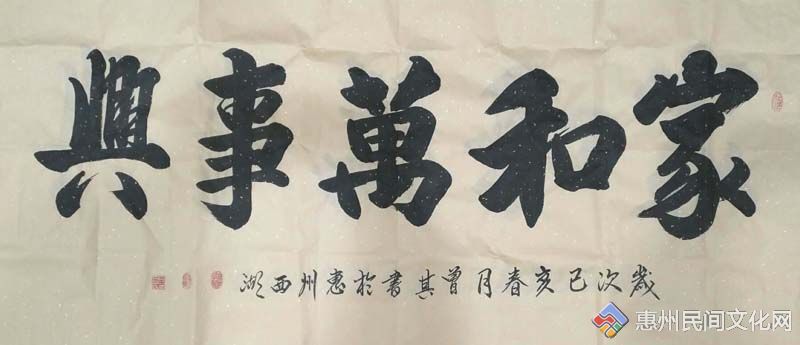 家和萬事興
歲次已亥春月曾其書於惠州西湖
惠州民间文化网